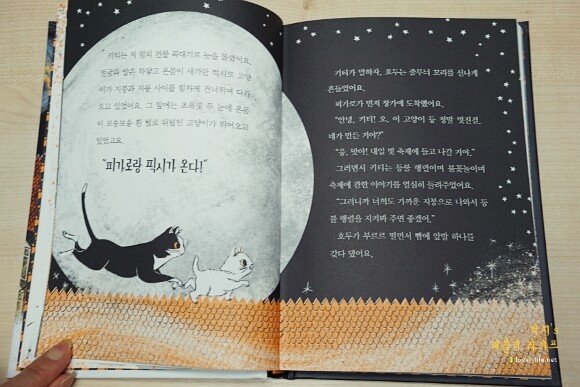 키티는 저 멀리 건물 꼭대기로 눈을 돌렸어요.
얼굴과 발은 하얗고 온몸이 새까만 턱시도 고양
이가 지붕과 지붕 사이를 힘차게 건너뛰며 다가
오고 있었어요. 그 옆에는 초록빛 두 눈에 온몸
이 보송보송 흰 털로 뒤덮인 고양이가 뛰어오고
있었고요.
"피가로랑 픽시가 온다!"
키티가 말하자, 호두는 줄무늬 꼬리를 신나게
흔들었어요.
피가로가 먼저 창가에 도착했어요.
"안녕, 키티! 오, 이 고양이 등 정말 멋진걸.
네가 만든 거야?"
"응, 맞아! 내일 빛 축제에 들고 나갈 거야."
그러면서 키티는 등불 행렬이며 불꽃놀이며
축제에 관한 이야기를 열심히 들려주었어요.
"그러니까 너희도 가까운 지붕으로 나와서 등
불 행렬을 지켜봐 주면 좋겠어."
호두가 부르르 떨면서 뺨에 앞발 하나를
갖다 댔어요.